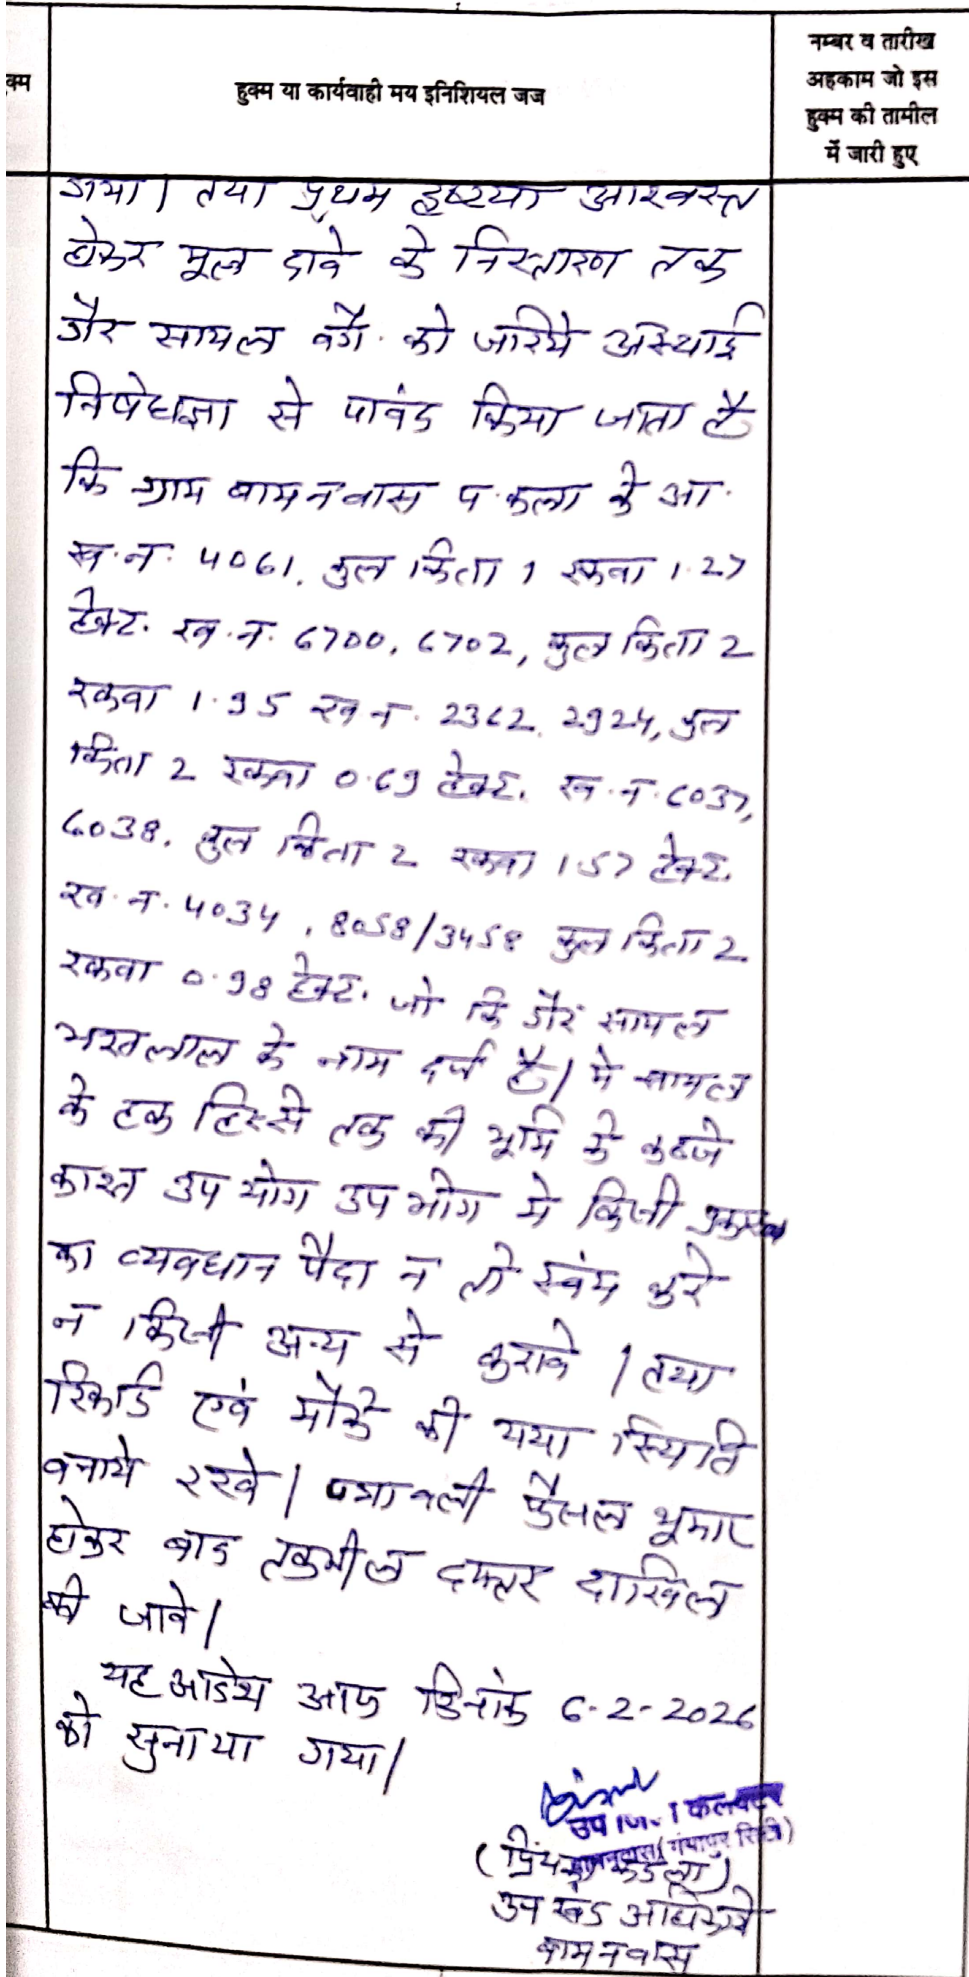 क्म
हुक्म या कार्यवाही मय इनिशियल जज
नम्बर व तारीख
अहकाम जो इस
हुक्म की तामील
में जारी हुए
गया। तथा प्रथम दृष्टया आश्वस्त
होकर मूल दावे के निस्तारण तक
गैर सायल वगै. को जरिये अस्थाई
निषेधाज्ञा से पाबंद किया जाता है
कि ग्राम बामनवास प.कला के आ.
ख.न. 4061, कुल किता 1 रकवा 1.27
हैक्ट. ख.न. 6700, 6702, कुल किता 2
रकवा 1.95 ख.न. 2362, 2924, कुल
किता 2 रकवा 0.69 हैक्ट. ख.न. 6037,
6038, कुल किता 2 रकवा 1.57 हैक्ट.
ख.न. 4034, 8058/3458 कुल किता 2
रकवा 0.98 हैक्ट. जो कि गैर सायल
भरतलाल के नाम दर्ज है। मे सायल
के हक हिस्से तक की भूमि के कब्जे
काश्त उपयोग उपभोग मे किसी प्रकार
का व्यवधान पैदा न तो स्वंय करे
न किसी अन्य से करावे। तथा
रिकार्ड एवं मौके की यथा स्थिति
बनाये रखे। पत्रावली फैसल शुमार
होकर बाद तकमील दफ्तर दाखिल
की जावे।
यह आदेश आज दिनांक 6-2-2026
को सुनाया गया।
उप जिला कलक्टर
बामनवास (गंगापुर सिटी)
उप खंड अधिकारी
बामनवास